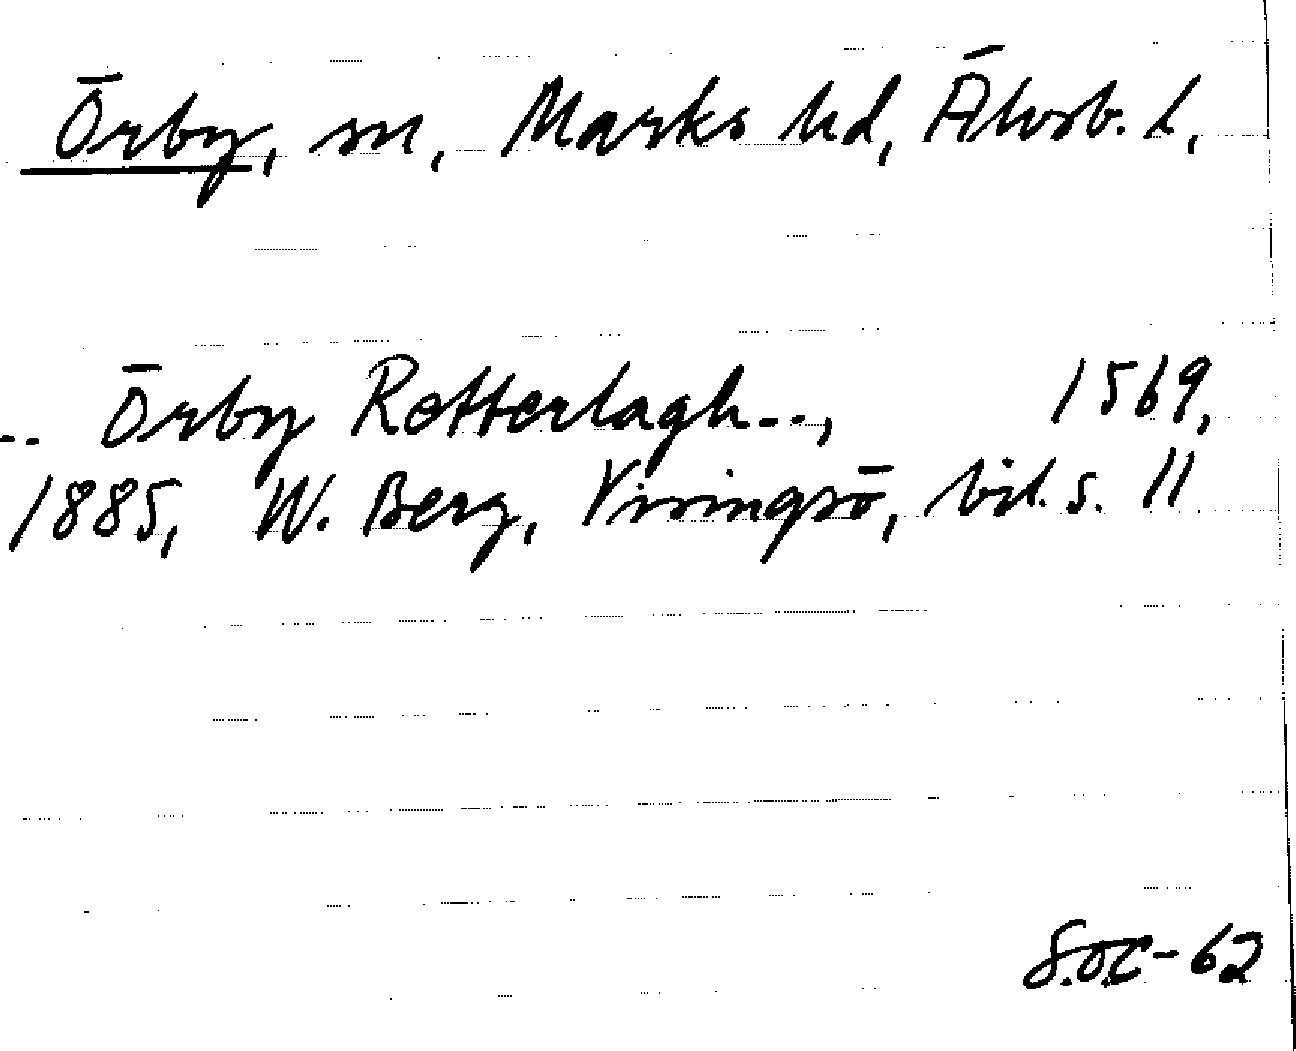 Örby, sn, Marks hd, Älvsb. l.
.. Örby Retterlagh..., 1569,
1885, W. Berg, Visingsö, bil. s. 11